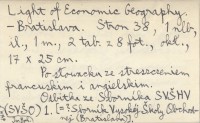 Light of Economic Geography.
- Bratislava. Stron 38, 1 nlb,
il., 1 m., 2 tab. z 8 fot., okł.,
17 x 25 cm.
Po słowacku ze streszczeniem
francuskim i angielskim.
Odbitka ze Sbornika SVŠHV
(SVŠO) 1. [= Sborník Vysokej Školy Obchod-
nej (Bratislava)].